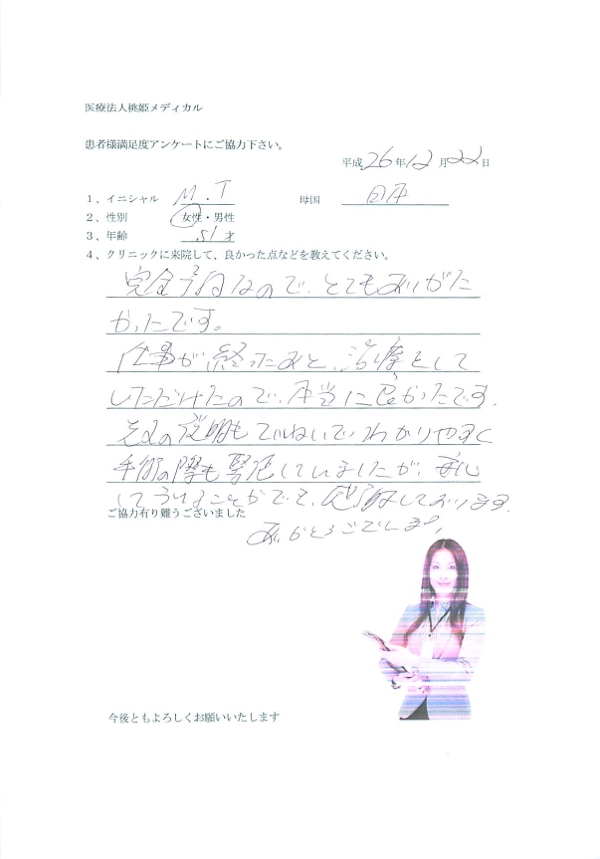 医療法人桃姫メディカル
患者様満足度アンケートにご協力下さい。
平成26年12月22日
1、イニシャル M.T 母国 日本
2、性別 女性・男性
3、年齢 51才
4、クリニックに来院して、良かった点などを教えてください。
完全予約なので、とてもありがた
かったです。
仕事が終ったあと、治療をして
いただけたので、本当に良かったです。
先生の説明もていねいで、わかりやすく
手術の際も緊張していましたが、安心
してうけることができて、感謝しております。
ご協力有り難うございました
ありがとうございました。
今後ともよろしくお願いいたします